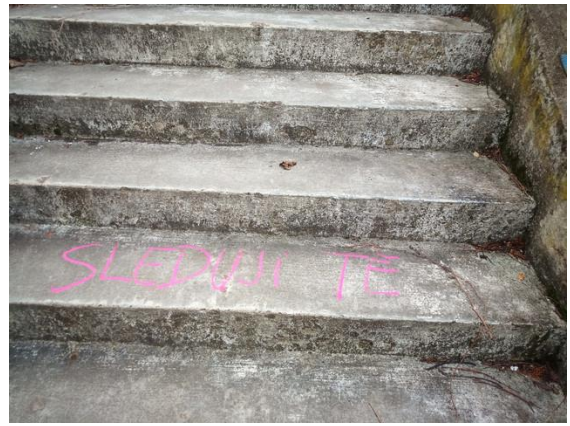 SLEDUJI TĚ